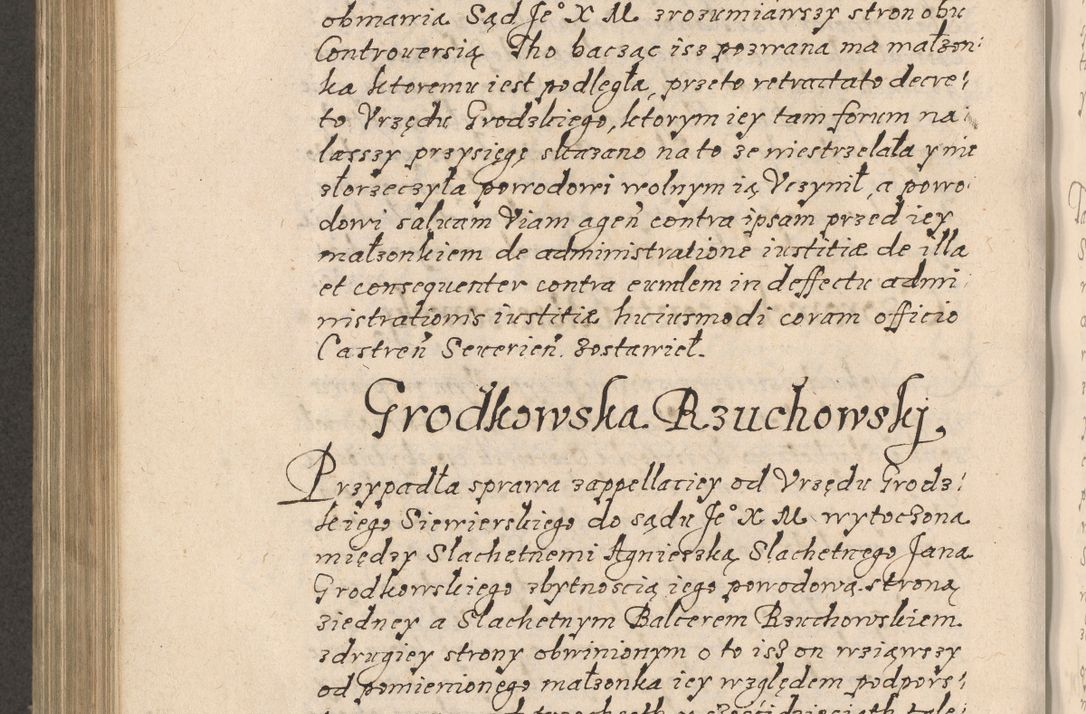 obmawia Sąd Je° X M zrozumiawszy stron obu
Controuersią Tho bacząc isz pozwana ma małzon:
ka ktoremu iest podległa, przeto retractato decre:
to Vrzędu Grodzkiego, ktorym iey tam forum na:
lasszy przysięgę skazano na to ze niestrzelała y nie
złorzeczyła powodowi wolnym ią Vczynił, a powo:
dowi saluam Viam agen̄ contra ipsam przed iey
małzonkiem de administratione iustitiæ de illa
et consequenter contra eumdem in deffectu admi:
nistrationis iustitiæ huiusmodi coram officio
Castren̄ Seuerien̄. zostawieł.
Grodkowska Rzuchowskj.
Przypadła sprawa zappellaciey od Vrzędu Grodz:
kiego Siewierskiego do sądu Je° X M wytoczona
między Slachetnemi Agnieszką Slachetnego Jana
Grodkowskiego zbytnoscią iego powodową stroną
ziedney a Slachetnym Balcerem Rzuchowskiem
zdrugiey strony obwinionym o to isz on wziąwszy
od pomienionęgo małzonka iey względem podpors: